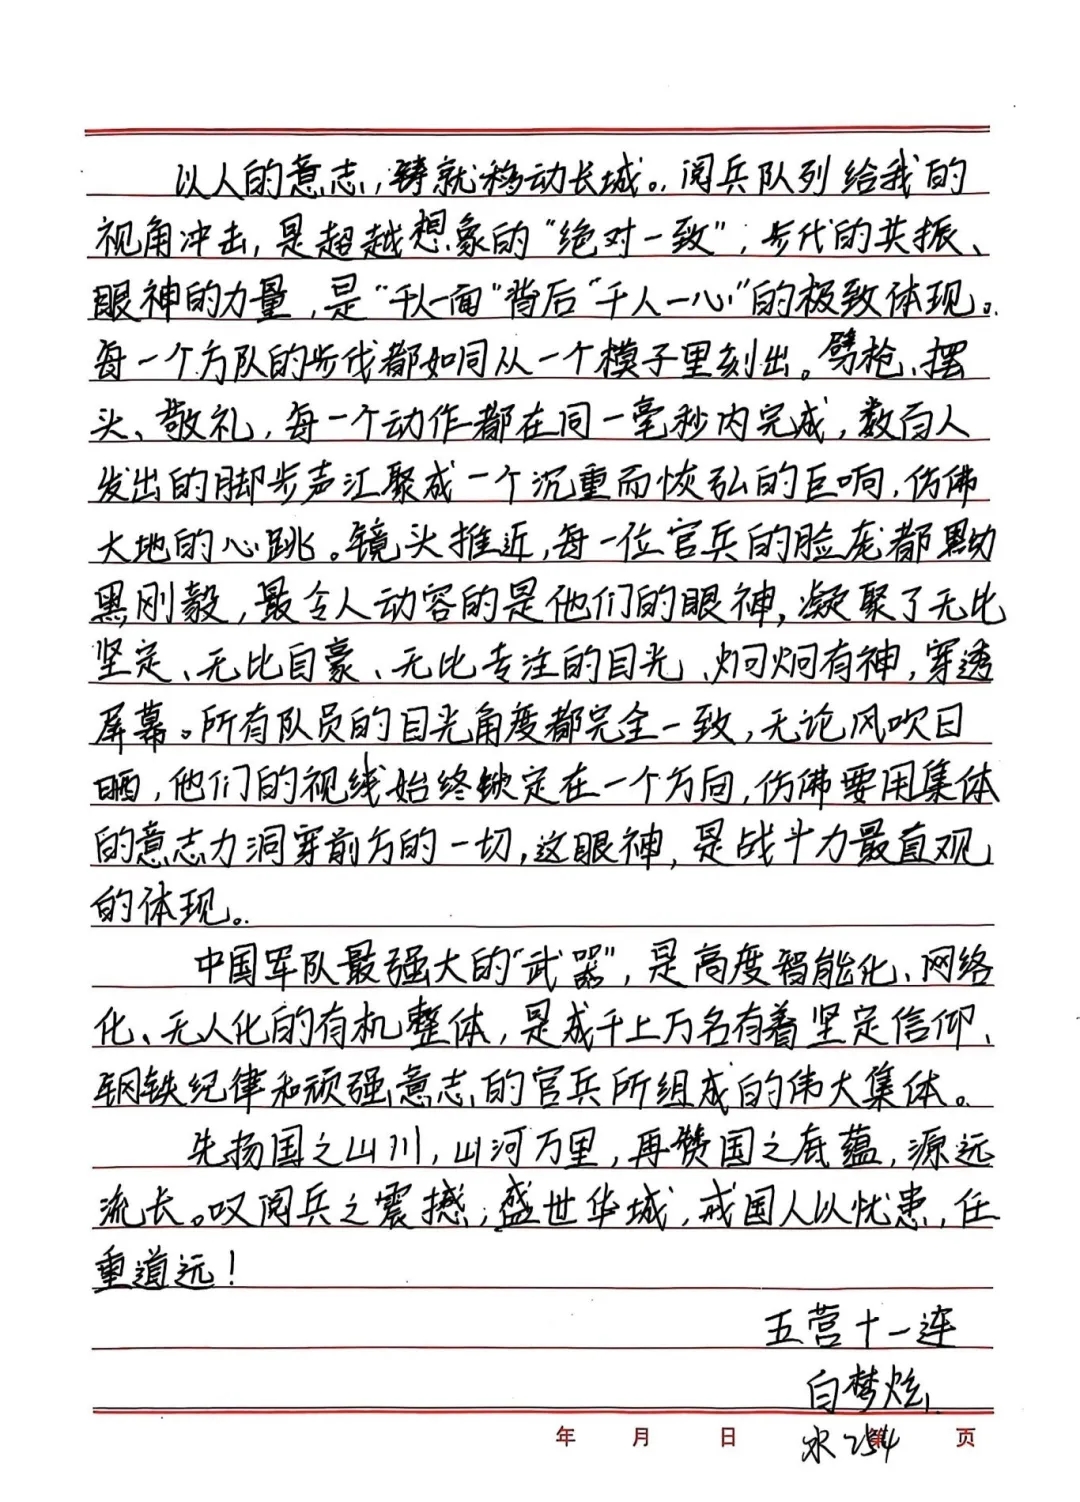 以人的意志，铸就移动长城。阅兵队列给我的
视角冲击，是超越想象的“绝对一致”，步伐的共振、
眼神的力量，是“千人一面”背后“千人一心”的极致体现。
每一个方队的步伐都如同从一个模子里刻出。劈枪、摆
头、敬礼，每一个动作都在同一毫秒内完成，数百人
发出的脚步声汇聚成一个沉重而恢弘的巨响，仿佛
大地的心跳。镜头推近，每一位官兵的脸庞都黝
黑刚毅，最令人动容的是他们的眼神，凝聚了无比
坚定、无比自豪、无比专注的目光，炯炯有神，穿透
屏幕。所有队员的目光角度都完全一致，无论风吹日
晒，他们的视线始终锁定在一个方向，仿佛要用集体
的意志力洞穿前方的一切，这眼神，是战斗力最直观
的体现。
中国军队最强大的“武器”，是高度智能化、网络
化、无人化的有机整体，是成千上万名有着坚定信仰、
钢铁纪律和顽强意志的官兵所组成的伟大集体。
先扬国之山川，山河万里，再赞国之底蕴，源远
流长。叹阅兵之震撼，盛世华城，戒国人以忧患，任
重道远！
五营十一连
白梦炫
水254
年 月 日 第 页